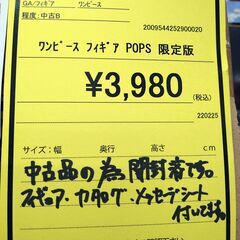 GA/フィギア ワンピース
程度:中古B
2009544252900020
ワンピース フィギア POPS 限定版
¥3,980
(税込)
220225
サイズ:幅 奥行 高さ cm
中古品の為開封済です。
フィギュア・カタログ・メッセージシート
付いてます。